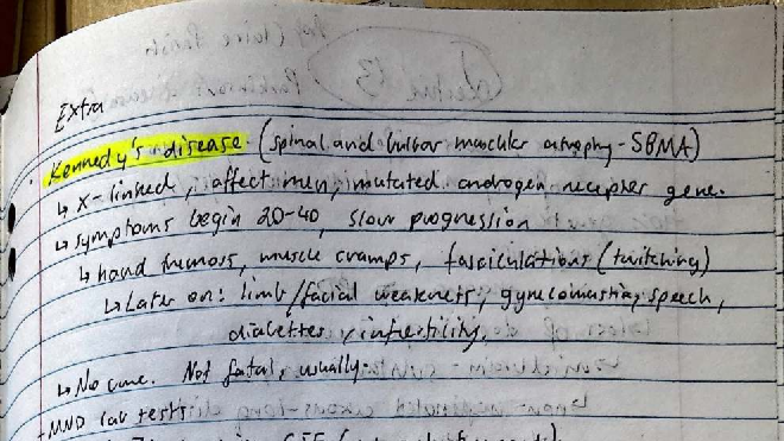 Extra
Kennedy's disease. (spinal and bulbar muscular atrophy - SBMA)
↳ X-linked, affect men, mutated androgen receptor gene.
↳ symptoms begin 20-40, slow progression
↳ hand tremors, muscle cramps, fasciculations (twitching)
↳ Later on: limb/facial weakness, gynecomastia, speech,
diabettes, infertility.
↳ No cure. Not fatal, usually.
MND lab tests
CSF